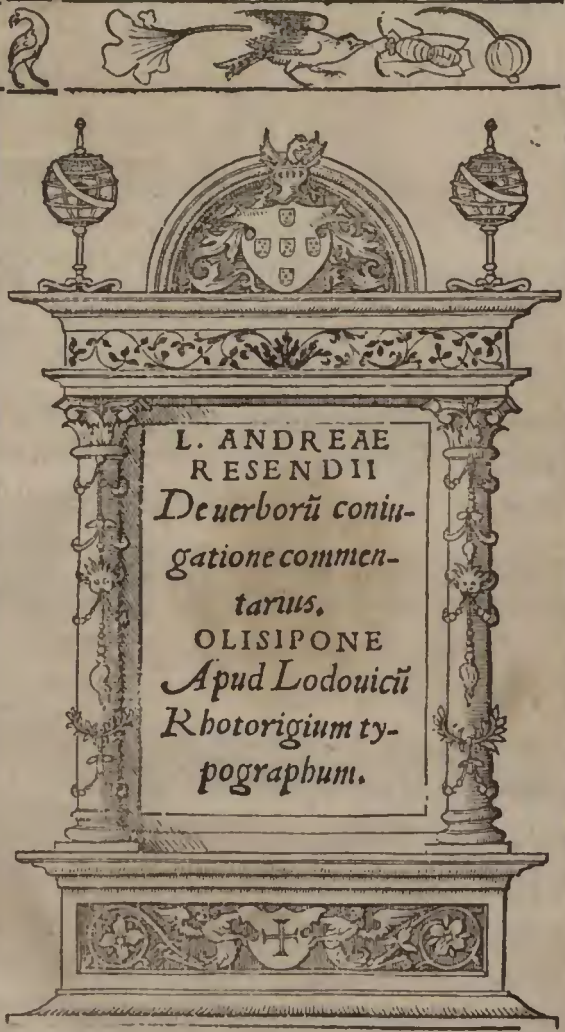 L. ANDREAE
RESENDII
De uerborũ coniu-
gatione commen-
tarius.
OLISIPONE
Apud Lodouicũ
Rhotorigium ty-
pographum.